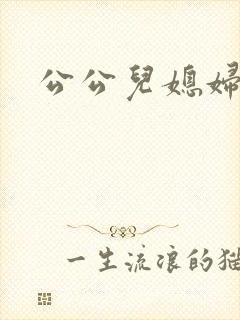 公公兒媳婦
一生流浪的猫